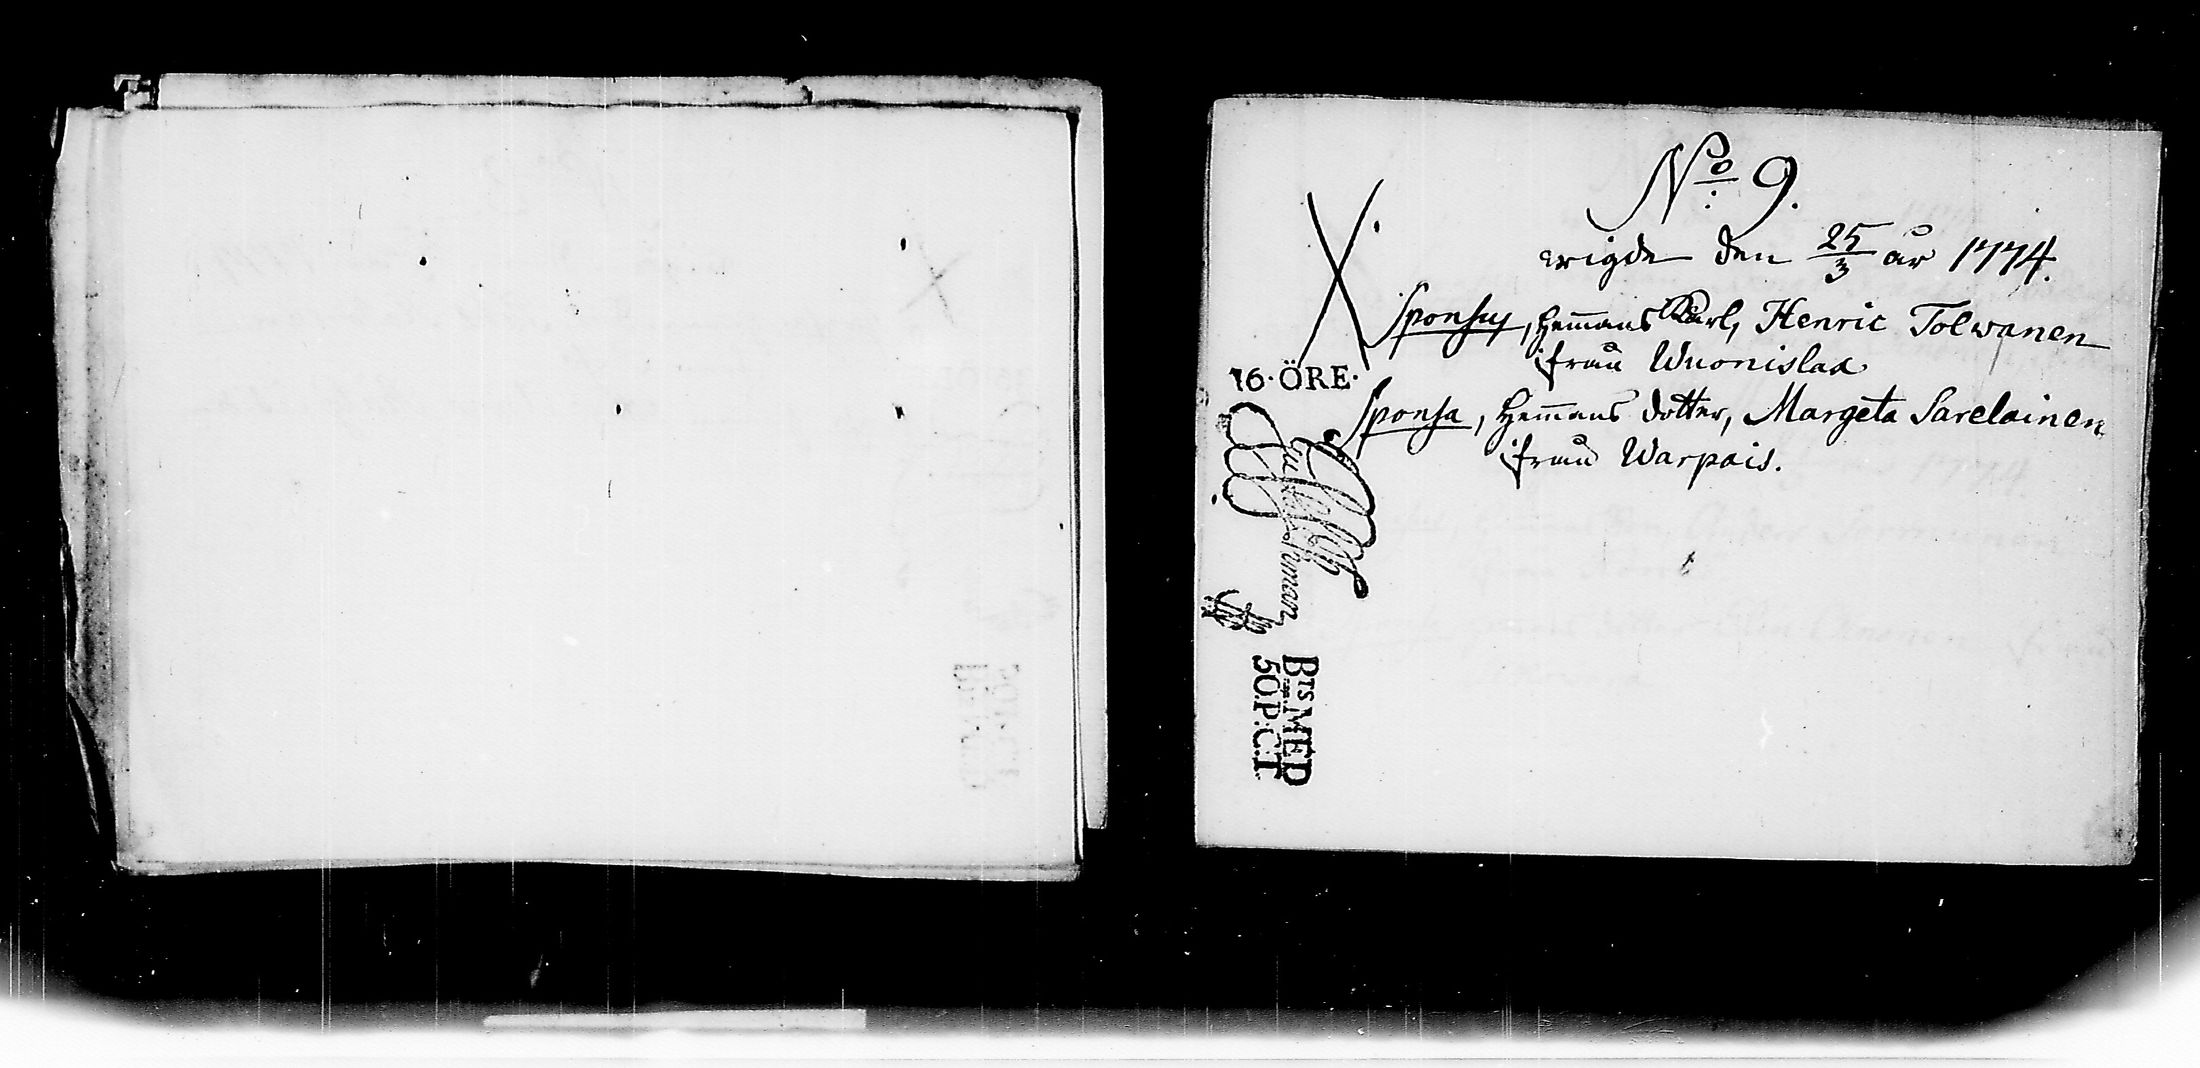 No: 9.
wigde den 25/3 år 1774.
Sponsus, Hem̅ans Karl, Henric Tolwanen
ifrån Wuonislax
16·ÖRE·
Sponsa, Hem̅ans dotter, Margeta Sarelainen
ifrån Warpais.
BTS.MED
50.P:C:T